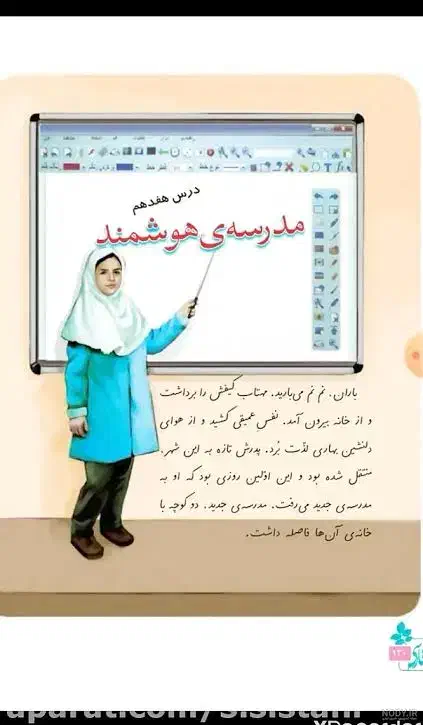 درس هفدهم
مدرسه‌ی هوشمند
باران، نم نم می‌بارید. مهتاب کیفش را برداشت
و از خانه بیرون آمد. نفس عمیقی کشید و از هوای
دلنشین بهاری لذّت بُرد. پدرش تازه به این شهر،
منتقل شده بود و این اوّلین روزی بود که او به
مدرسه‌ی جدید می‌رفت. مدرسه‌ی جدید، دو کوچه با
خانه‌ی آن‌ها فاصله داشت.
۱۳۰
NODY.IR